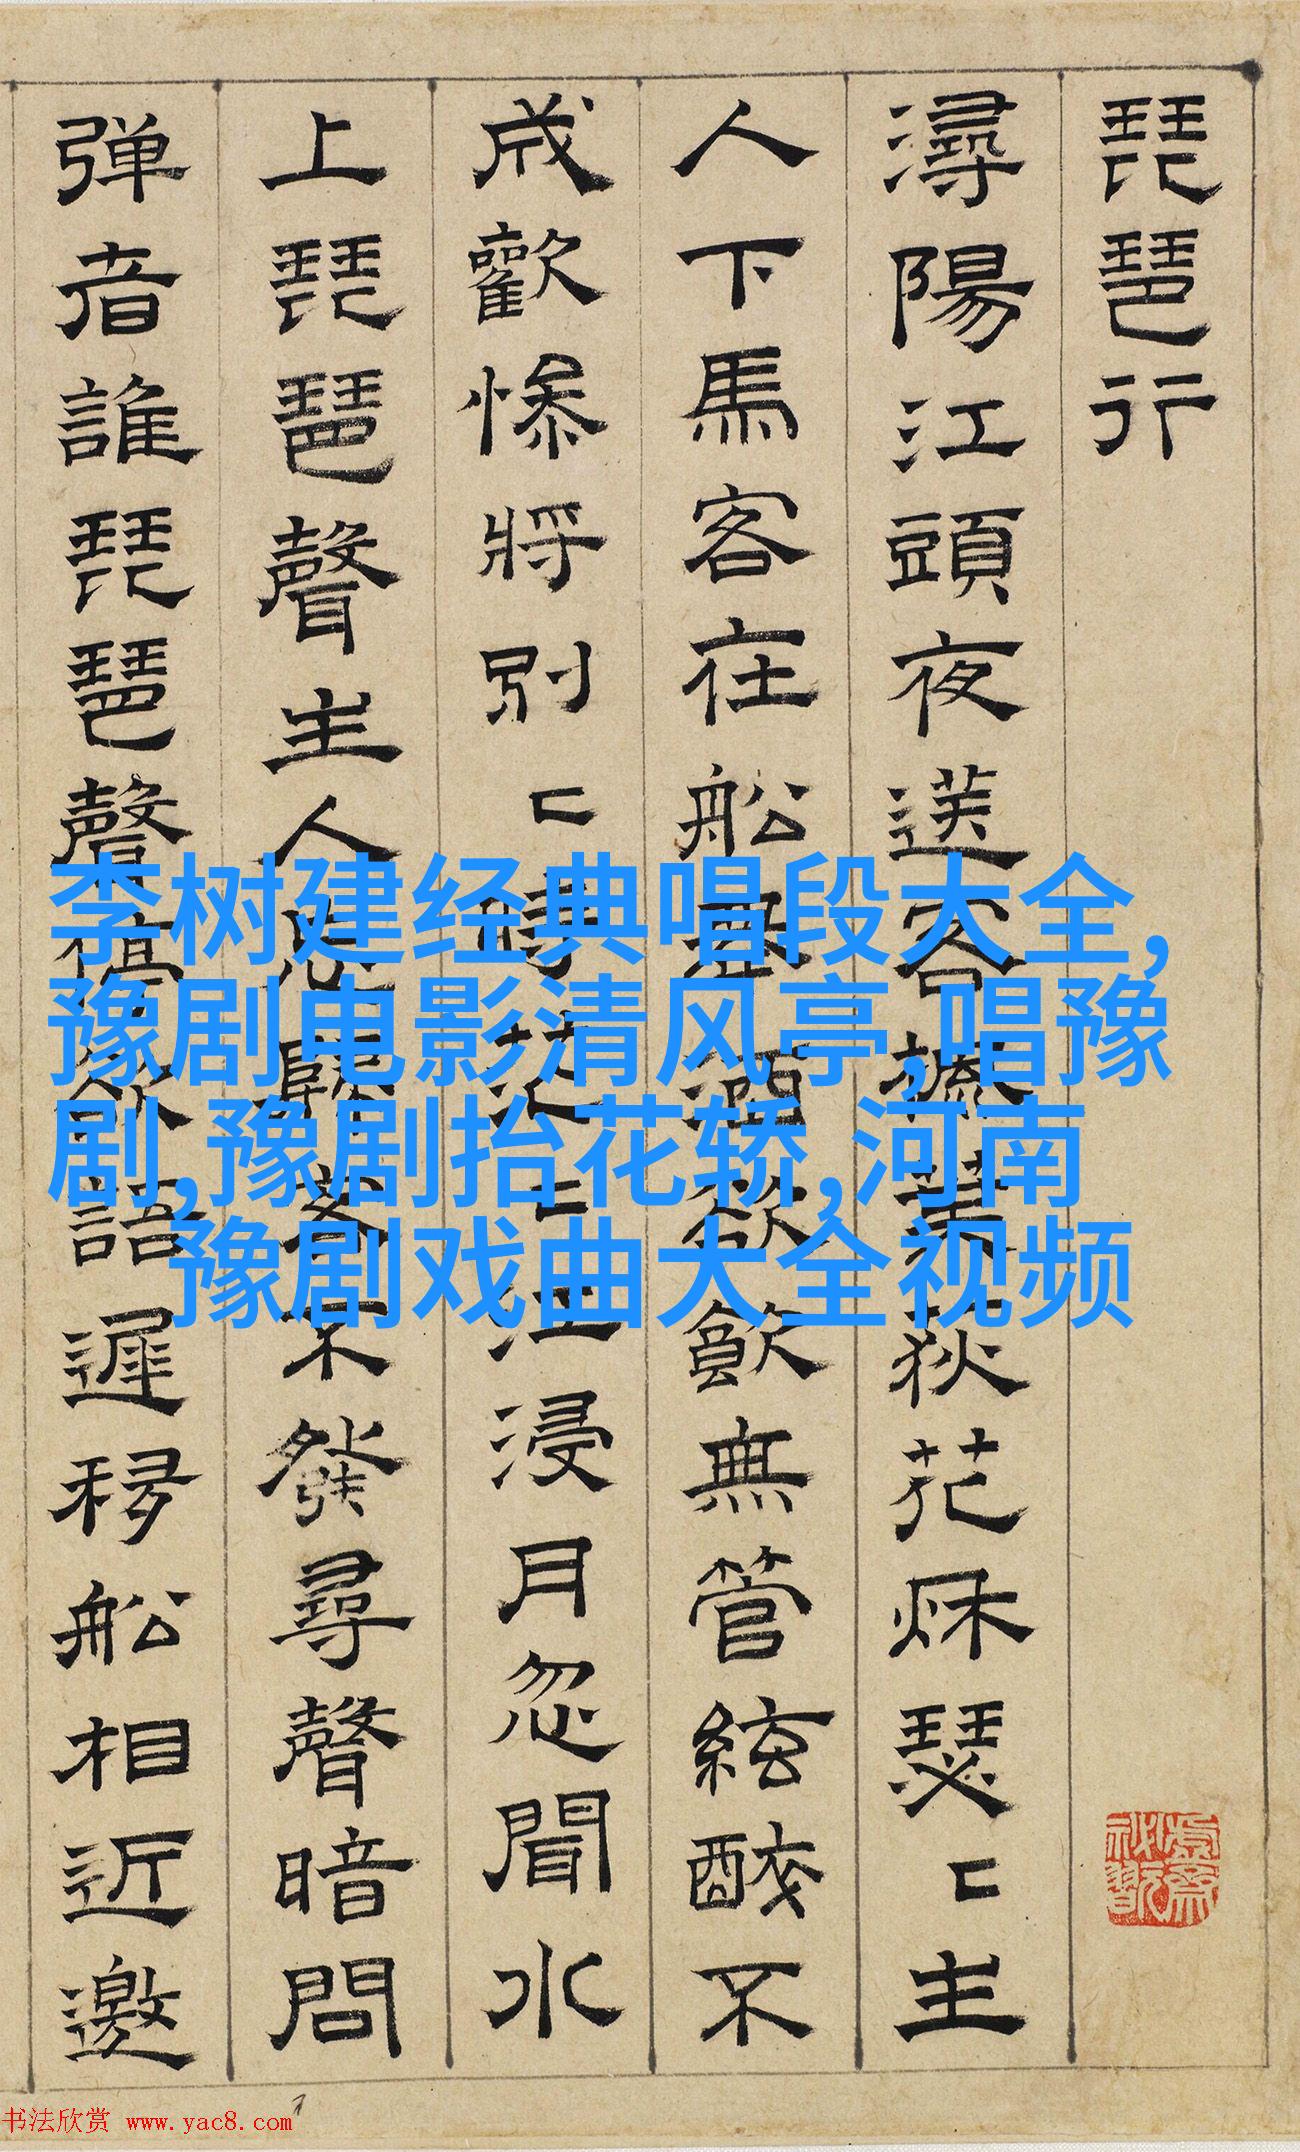 琵琶行
潯陽江頭夜送客楓葉荻花秌瑟〻主
人下馬客在船舉酒欲飲無管絃醉不
成歡慘將別〻時茫〻江浸月忽聞水
上琵琶聲主人忘歸客不發尋聲暗問
弹者誰琵琶聲停欲語遲移船相近邀
李树建经典唱段大全,
豫剧电影清风亭,唱豫
剧,豫剧抬花轿,河南
豫剧戏曲大全视频
书法欣赏 www.yac8.com